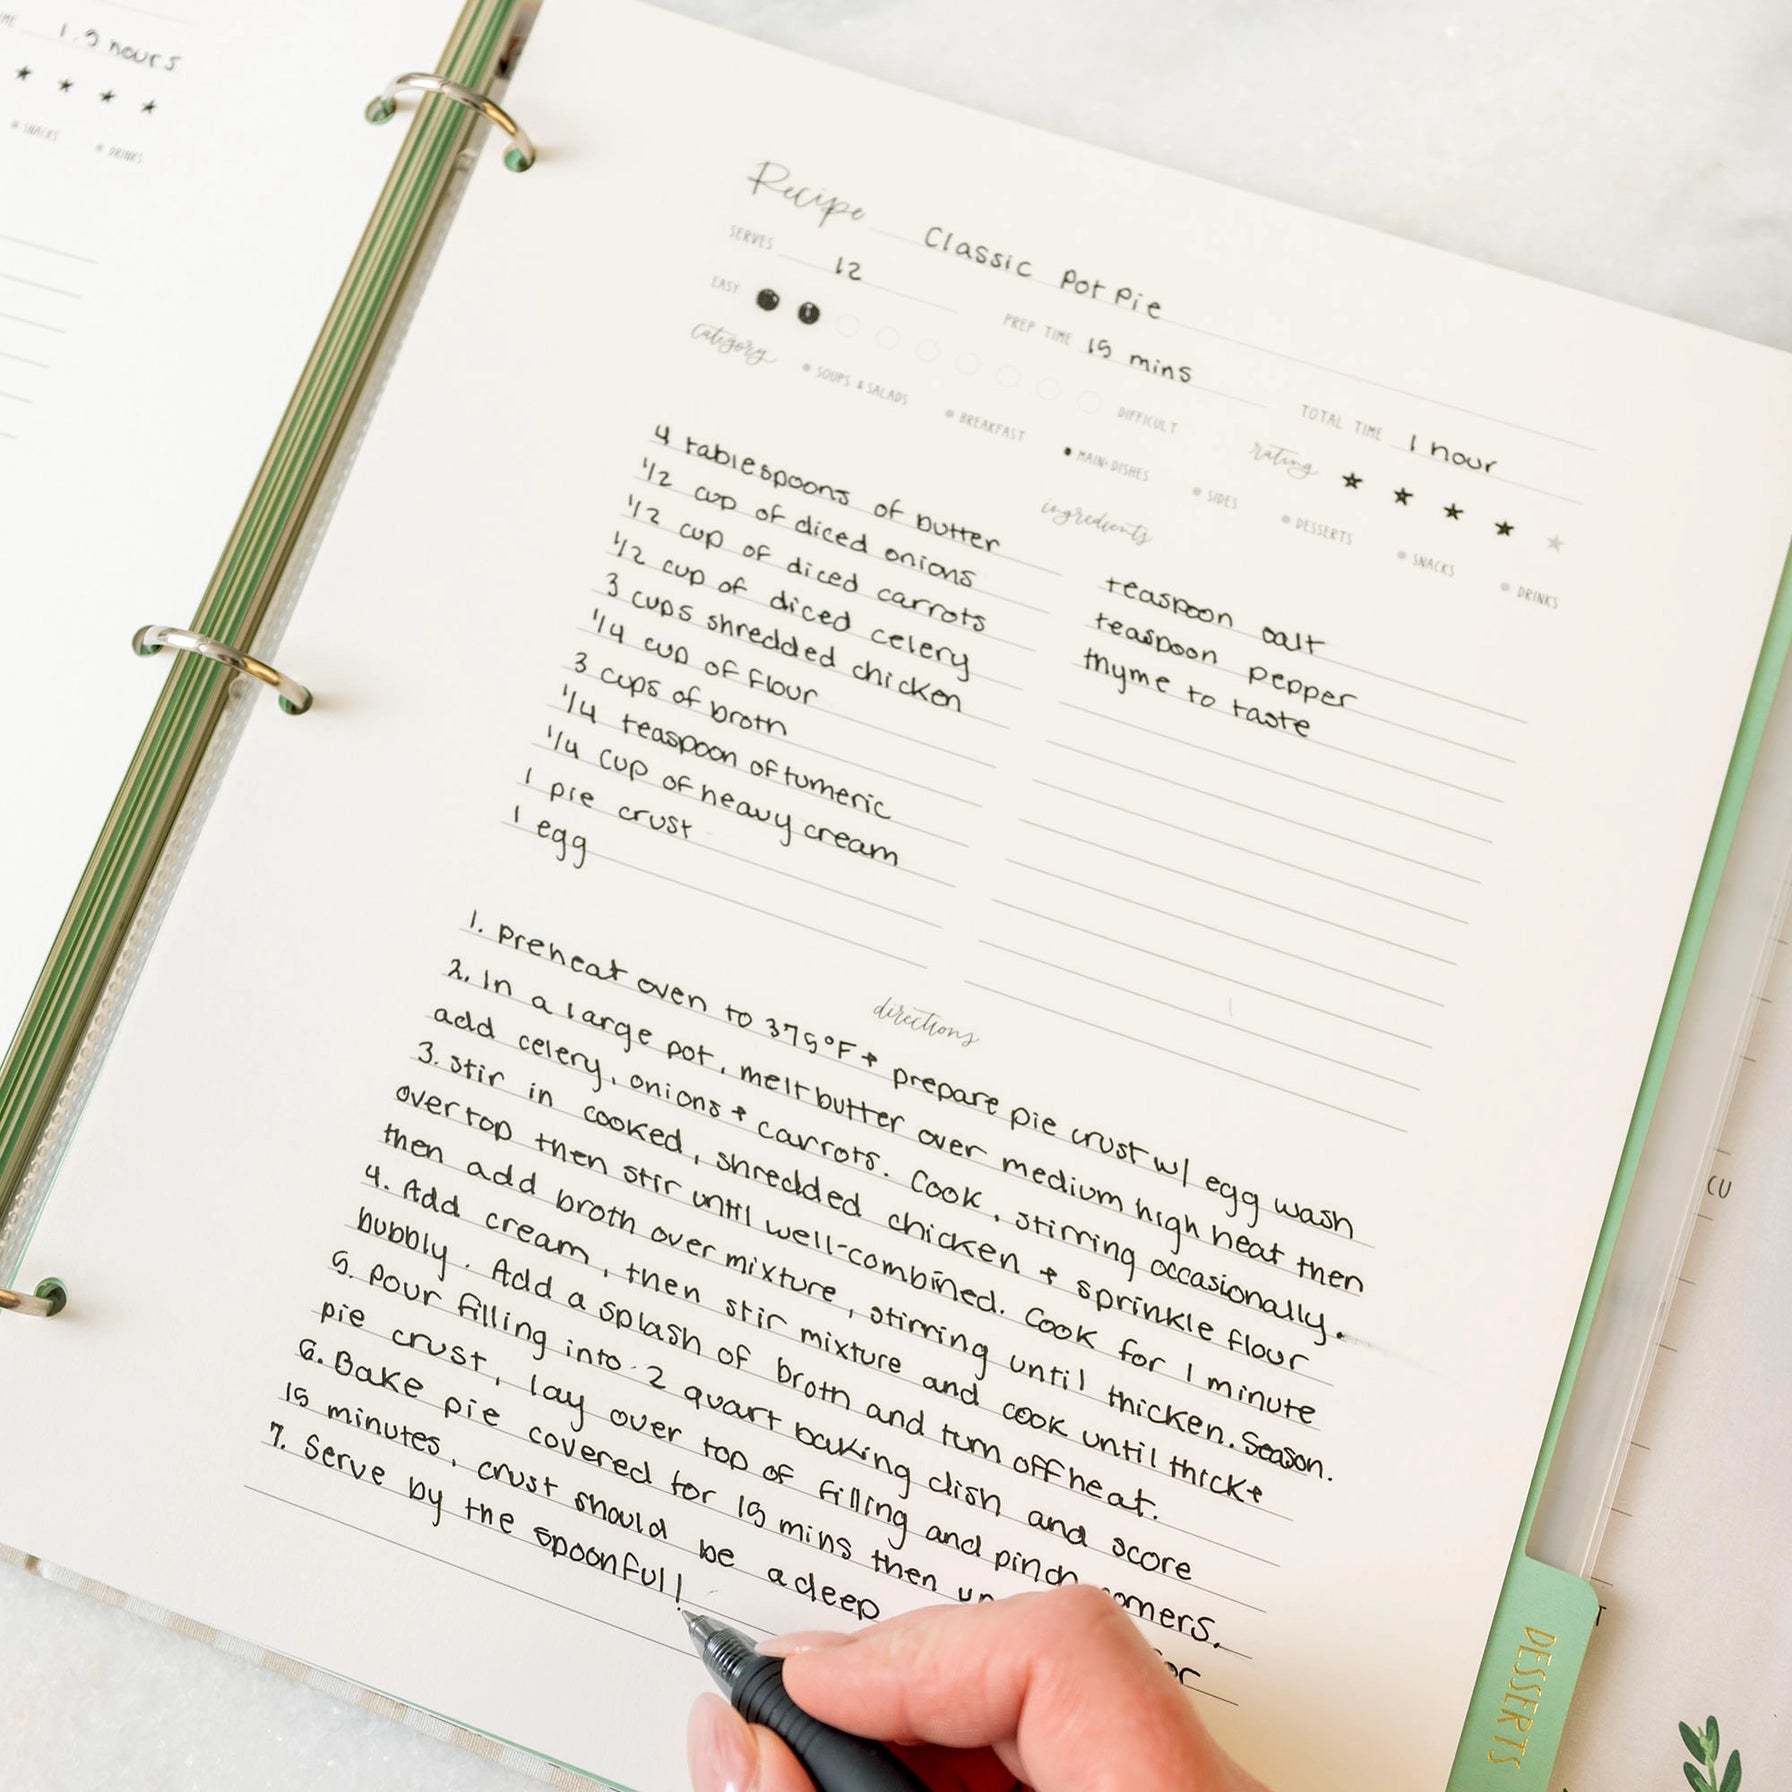 1.5 hours
SNACKS
DRINKS
Recipe Classic Pot Pie
SERVES 12
PREP TIME 15 mins
TOTAL TIME 1 hour
EASY
DIFFICULT
rating
category
SOUPS & SALADS
BREAKFAST
MAIN-DISHES
SIDES
DESSERTS
SNACKS
DRINKS
ingredients
4 tablespoons of butter
1/2 cup of diced onions
1/2 cup of diced carrots
1/2 cup of diced celery
3 cups shredded chicken
1/4 cup of flour
3 cups of broth
1/4 teaspoon of tumeric
1/4 cup of heavy cream
1 pie crust
1 egg
teaspoon salt
teaspoon pepper
thyme to taste
directions
1. Preheat oven to 375°F + prepare pie crust w/ egg wash
2. In a large pot, melt butter over medium high heat then
add celery, onions + carrots. Cook, stirring occasionally.
3. Stir in cooked, shredded chicken + sprinkle flour
over top then stir until well-combined. Cook for 1 minute
then add broth over mixture, stirring until thicken. Season.
4. Add cream, then stir mixture and cook until thick +
bubbly. Add a splash of broth and turn off heat.
5. Pour filling into 2 quart baking dish and score
pie crust, lay over top of filling and pinch corners.
6. Bake pie covered for 15 mins then
15 minutes, crust should be a deep
7. Serve by the spoonful!
CU
DESSERTS